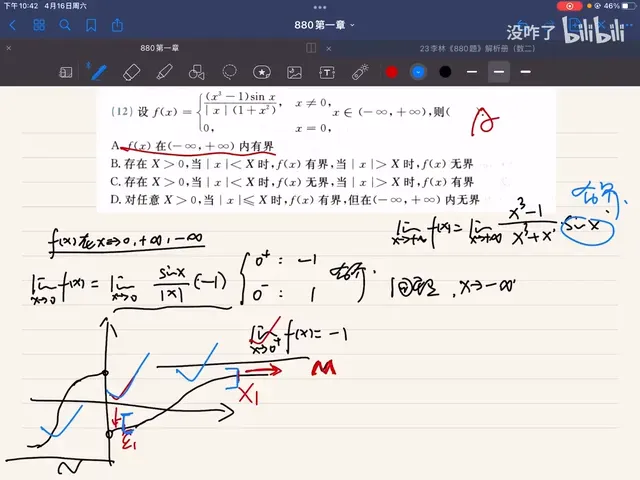 下午10:42 4月16日周六
46%
880第一章
没咋了 bilibili
880第一章
23李林《880题》解析册（数二）
(12) 设 f(x) = { (x³−1)sin x / |x|(1+x²), x≠0, 0, x=0, x∈(−∞,+∞), 则(
A
A. f(x) 在(−∞,+∞)内有界
B. 存在 X>0, 当|x|<X 时, f(x)有界, 当|x|>X 时, f(x)无界
C. 存在 X>0, 当|x|<X 时, f(x)无界, 当|x|>X 时, f(x)有界
D. 对任意 X>0, 当|x|≤X 时, f(x)有界, 但在(−∞,+∞)内无界
有界
f(x)在x→0,+∞,−∞
lim x→+∞ f(x) = lim x→+∞ x³−1 / x³+x · sin x
lim x→0 f(x) = lim x→0 sinx / |x| (−1) { 0⁺: −1
0⁻: 1
有界
同理, x→−∞
lim x→0⁺ f(x) = −1
M
X₁
ε₁